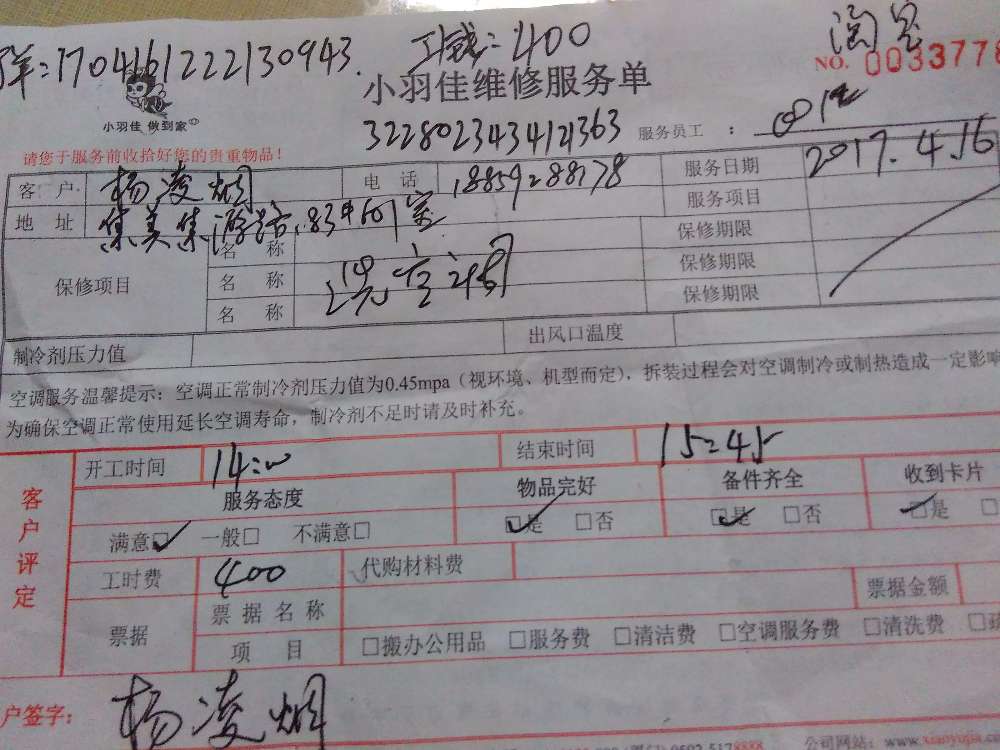 单:1704161222130943. 工钱:400 淘宝
NO. 0033778
小羽佳 做到家
小羽佳维修服务单
3228023434121363 服务员工 :
请您于服务前收拾好您的贵重物品!
客 户 杨凌烟 电 话 18859288178 服务日期 2017.4.16
地 址 集美集 服务项目
保修项目 名 称 保修期限
名 称 洗空调 保修期限
名 称 保修期限
制冷剂压力值 出风口温度
空调服务温馨提示:空调正常制冷剂压力值为0.45mpa(视环境、机型而定),拆装过程会对空调制冷或制热造成一定影响
为确保空调正常使用延长空调寿命,制冷剂不足时请及时补充。
客户评定
开工时间 14:00 结束时间 15:45
服务态度 物品完好 备件齐全 收到卡片
满意□ 一般□ 不满意□ □是 □否 □是 □否 □是
工时费 400 代购材料费
票据 票据名称 票据金额
项 目 □搬办公用品 □服务费 □清洁费 □空调服务费 □清洗费
户签字: 杨凌烟
公司网站:www.xiaoyujia.c